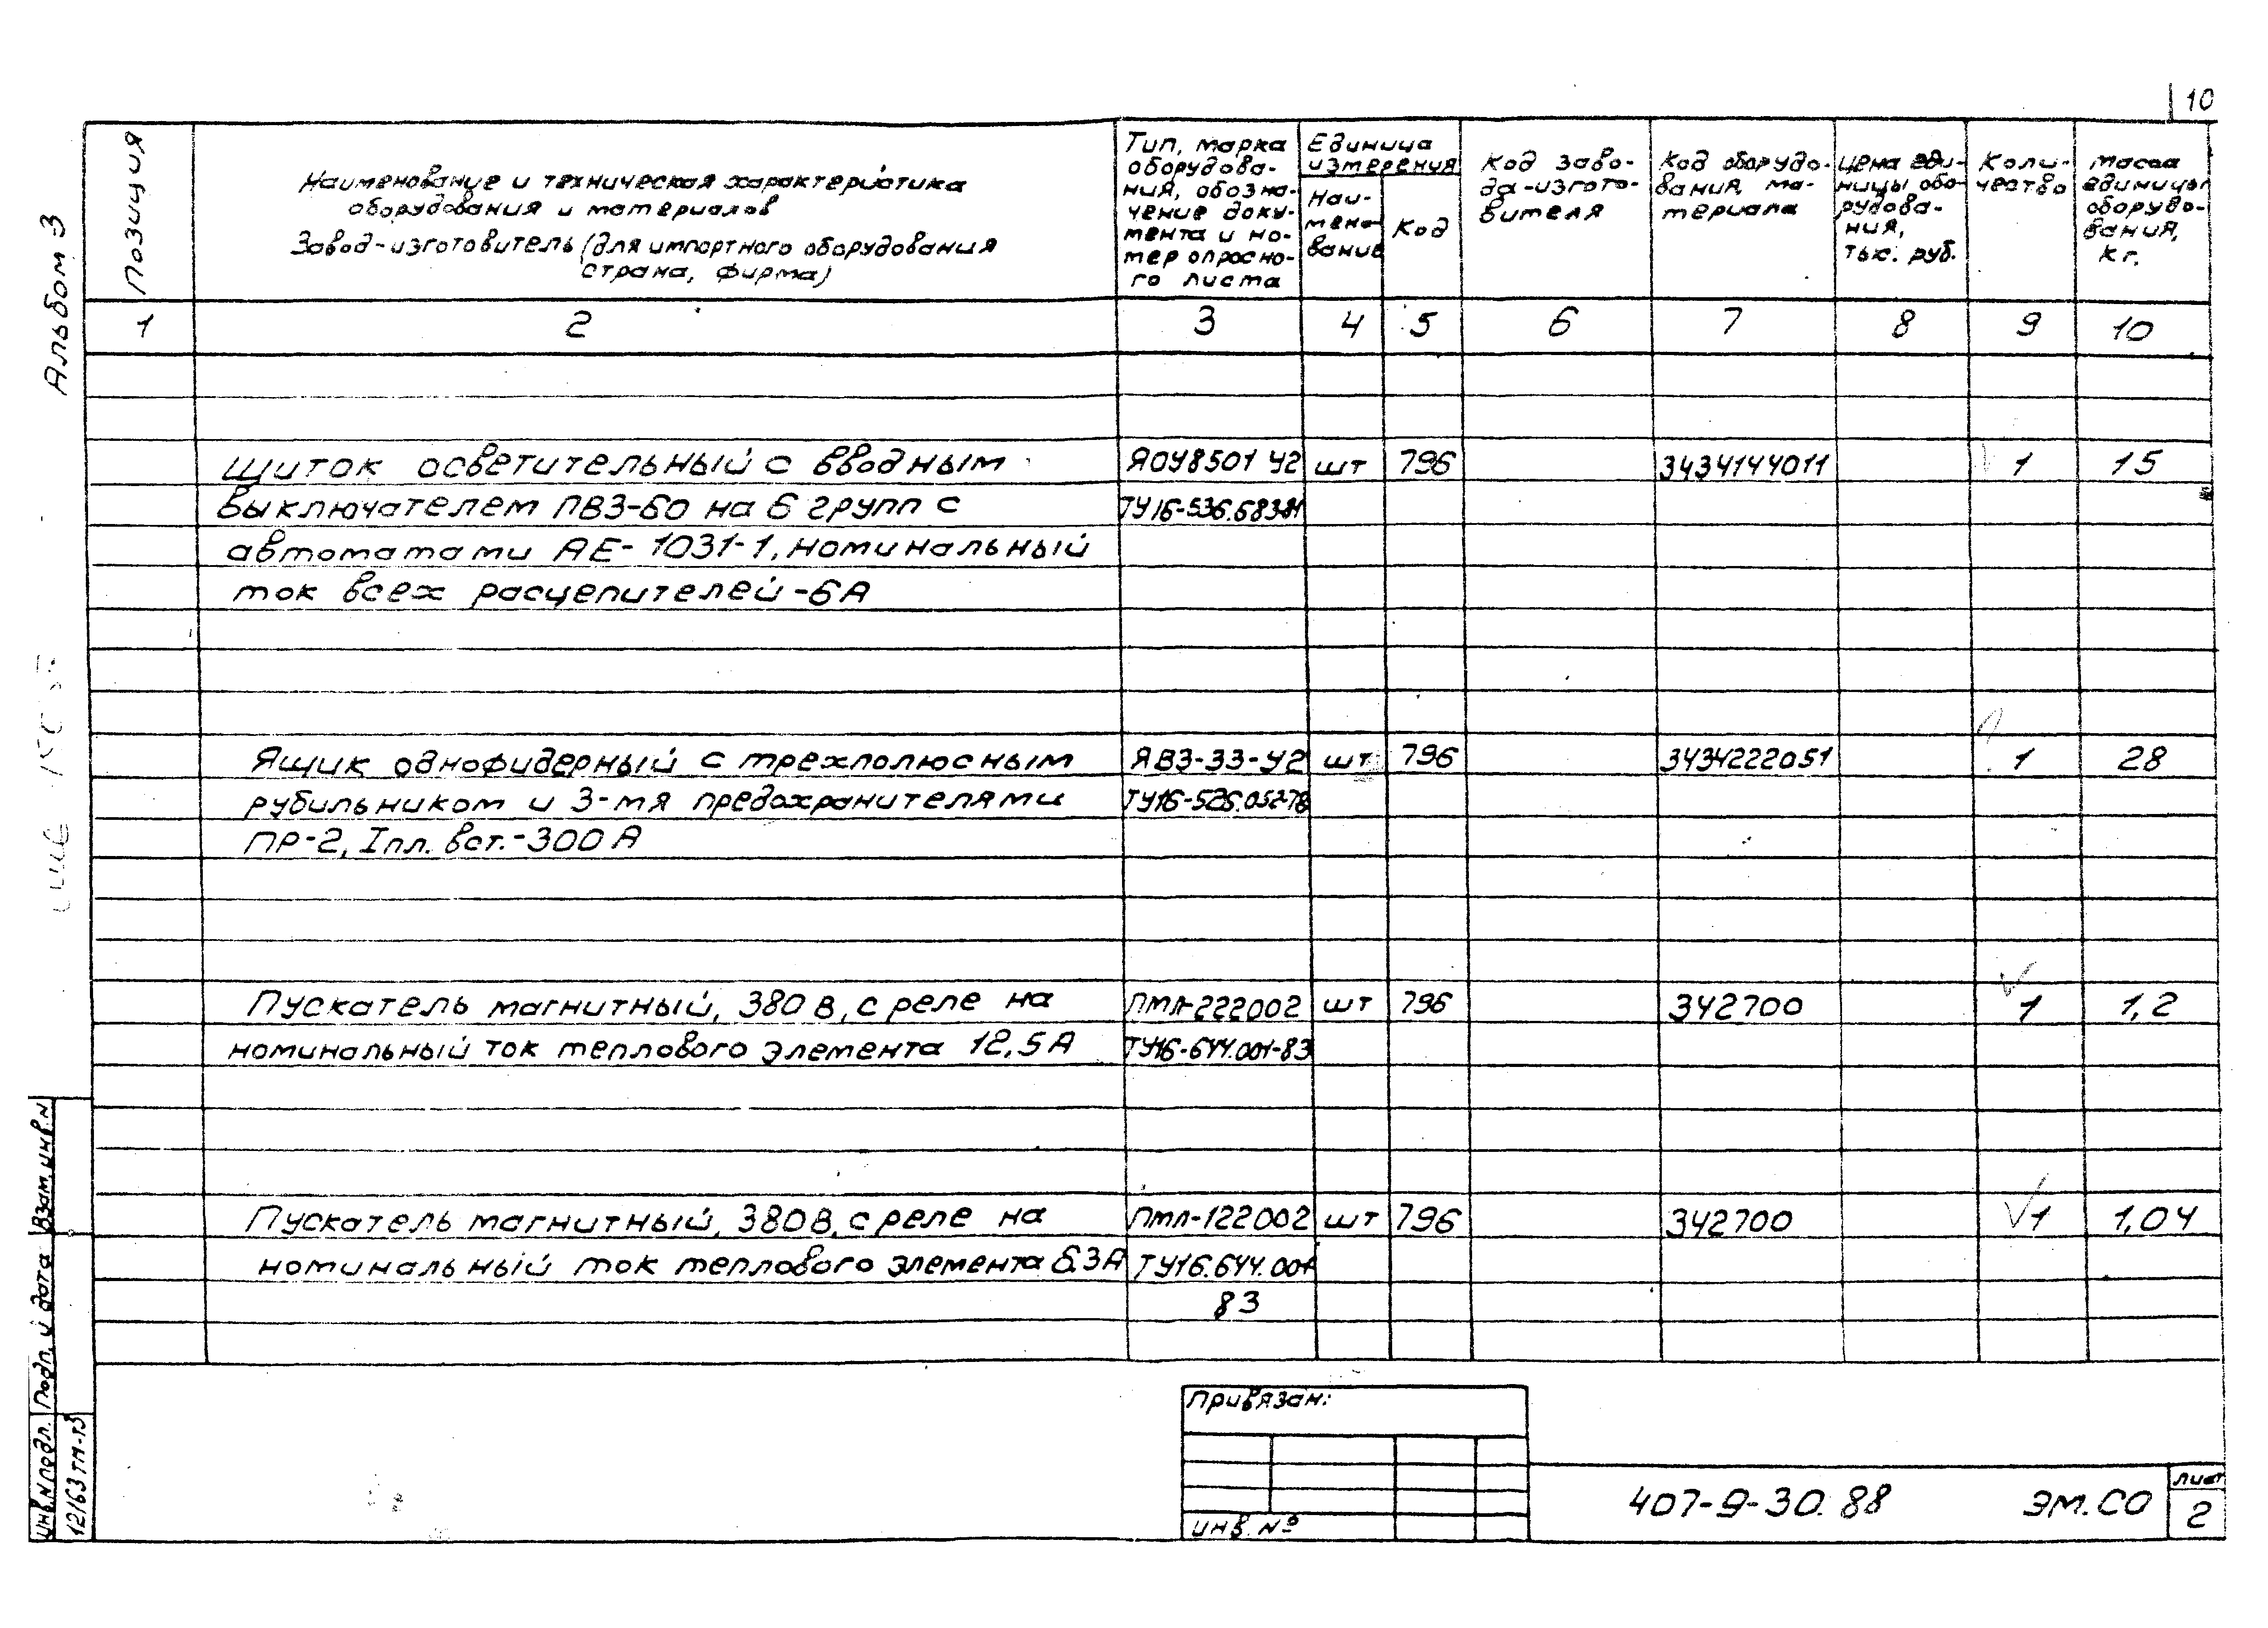 10
Альбом 3
Позиция
Наименование и техническая характеристика
оборудования и материалов
Завод-изготовитель (для импортного оборудования
страна, фирма)
Тип, марка
оборудова-
ния, обозна-
чение доку-
мента и но-
мер опросно-
го листа
Единица
измерения
Наи-
мено-
вание
Код
Код заво-
да-изгото-
вителя
Код оборудо-
вания, ма-
териала
Цена еди-
ницы обо-
рудова-
ния,
тыс. руб.
Коли-
чество
Масса
единицы
оборудо-
вания,
кг.
1 2 3 4 5 6 7 8 9 10
Щиток осветительный с вводным ЯОУ8501 У2 шт 796 3434144011 1 15
выключателем ПВ3-60 на 6 групп с ТУ16-536.683-81
автоматами АЕ-1031-1, номинальный
ток всех расцепителей-6А
Ящик однофидерный с трехполюсным ЯВ3-33-У2 шт 796 3434222051 1 28
рубильником и 3-мя предохранителями ТУ16-526.052-78
ПР-2, Iпл. вст.-300А
Пускатель магнитный, 380 в, с реле на ПМЛ-222002 шт 796 342700 1 1,2
номинальный ток теплового элемента 12,5А ТУ16-644.001-83
Пускатель магнитный, 380в, с реле на ПМЛ-122002 шт 796 342700 1 1,04
номинальный ток теплового элемента 6.3А ТУ16.644.001-
83
Взам.инв.N
Подп. и дата
Инв.Nподл.
12163тм-т3
Привязан:
Инв. №
407-9-30.88 ЭМ.СО
Лист
2